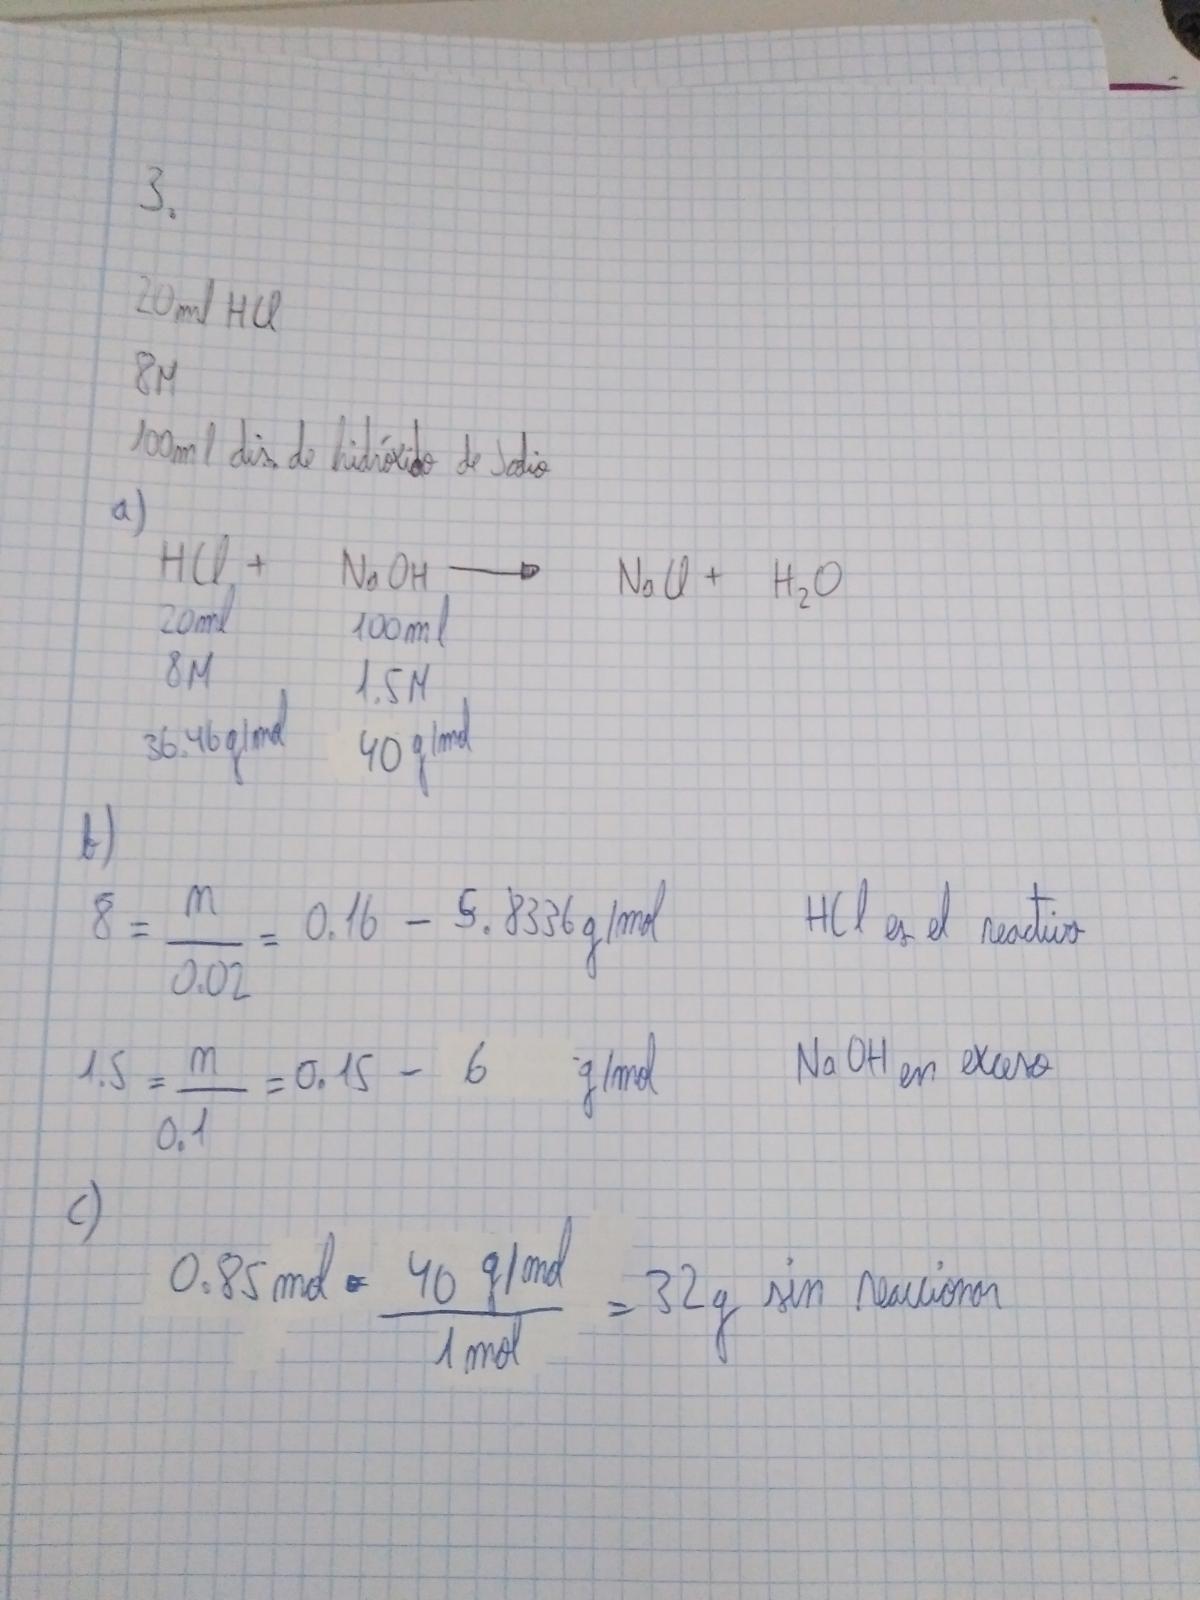 3.
20ml HCl
8M
100ml dis. de hidróxido de sodio
a)
HCl + NaOH → NaCl + H₂O
20ml 100ml
8M 1.5M
36.46g/mol 40 g/mol
b)
8 = n/0.02 = 0.16 - 5.8336g/mol HCl es el reactivo
1.5 = n/0.1 = 0.15 - 6 g/mol NaOH en exceso
c)
0.85 mol · 40 g/mol / 1 mol = 32g sin reaccionar